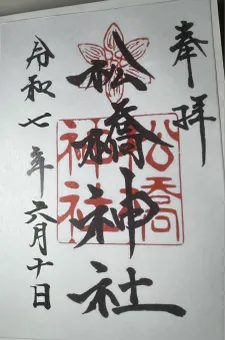 奉拝
松橋神社
松橋
神社
令和七年六月十日